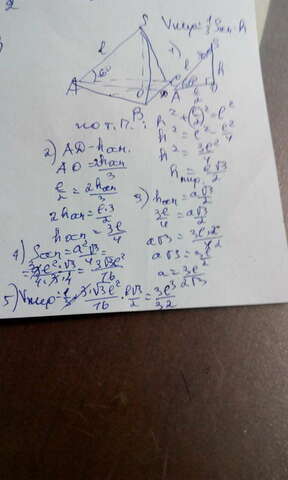 S
Vпир = 1/3 Sосн · h
l
60°
A
O
B
1)
S
l
h
A
l/2
O
по т. П.:
h² + (l/2)² = l²
h² = l² - l²/4
h² = 3l²/4
hпир = l√3/2
2) AO - hосн.
AO = 2hосн/3
l/2 = 2hосн/3
2hосн = l·3/2
hосн = 3l/4
3) hосн = a√3/2
3l/4 = a√3/2
a√3 = 3l·2/4
a√3 = 3l/2
a = 3l/2√3
4) Sосн = a²√3/4 =
= 3√3l²/16
5) Vпир = 1/3 · 3√3l²/16 · l√3/2 = 3l³/32